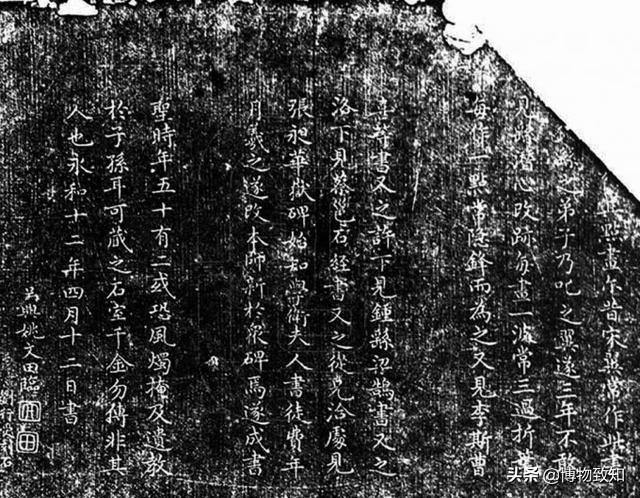 點畫尒昔宋翼常作此書
繇之弟子乃叱之翼遂三年不敢
見繇潛心改跡每畫一波常三過折筆
每作一點常隱鋒而為之又見李斯曹
喜等書又之許下見鍾繇梁鵠書又之
洛下見蔡邕石經書又之從兄洽處見
張昶華嶽碑始知學衛夫人書徒費年
月羲之遂改本師新於衆碑焉遂成書
聖時年五十有二或恐風燭掩及遺教
於子孫耳可藏之石室千金勿傳非其
人也永和十二年四月十二日書
吳興姚文田臨
头条 @博物致知